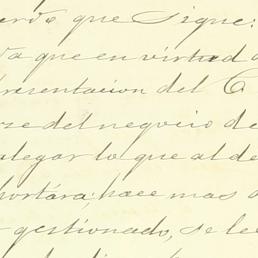 erdo que sigue:
a que en virtud d
presentacion del C
rse del negocio de
alegar lo que al de
portára; hace mas d
gestionado, se le